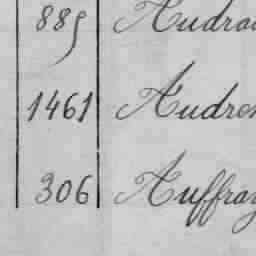 885 Audra
1461 Audren
306 Auffray